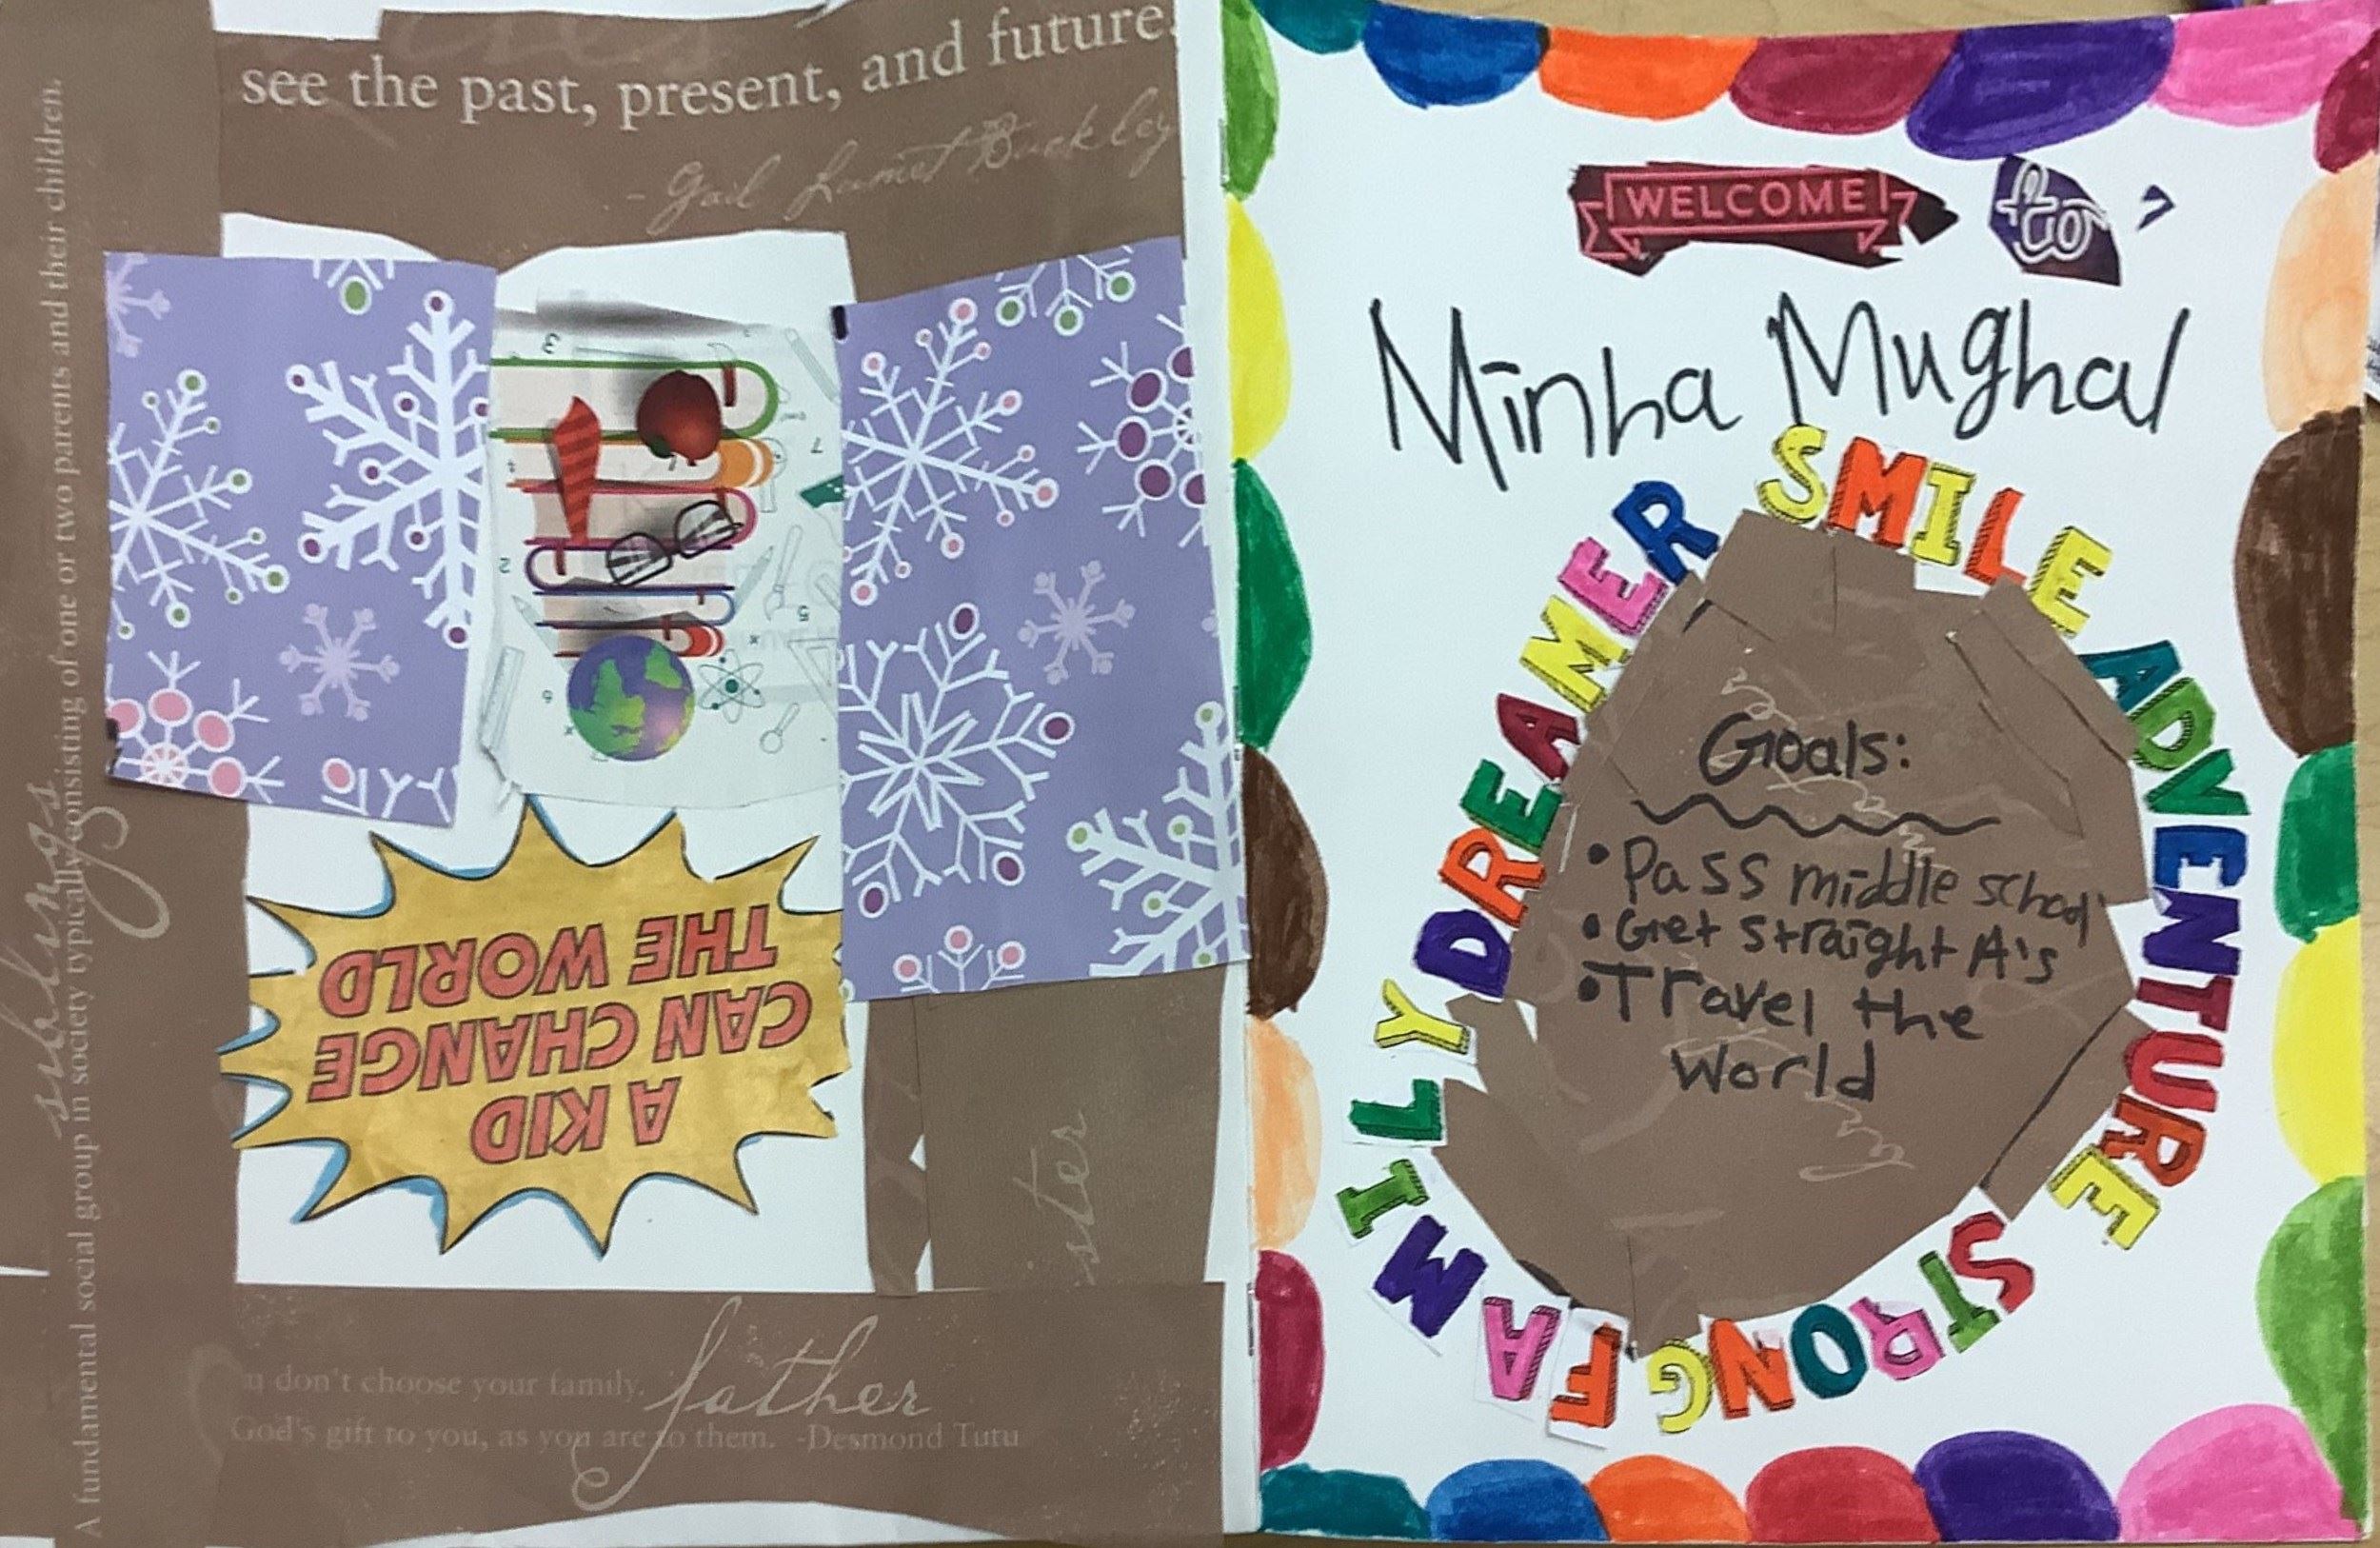 see the past, present, and future.
- Gail Lumet Buckley
A fundamental social group in society typically consisting of one or two parents and their children.
siblings
A KID
CAN CHANGE
THE WORLD
father
don't choose your family.
God's gift to you, as you are to them. -Desmond Tutu
WELCOME to
Minha Mughal
SMILE ADVENTURE STRONG FAMILY DREAMER
Goals:
• Pass middle school
• Get straight A's
• Travel the
World